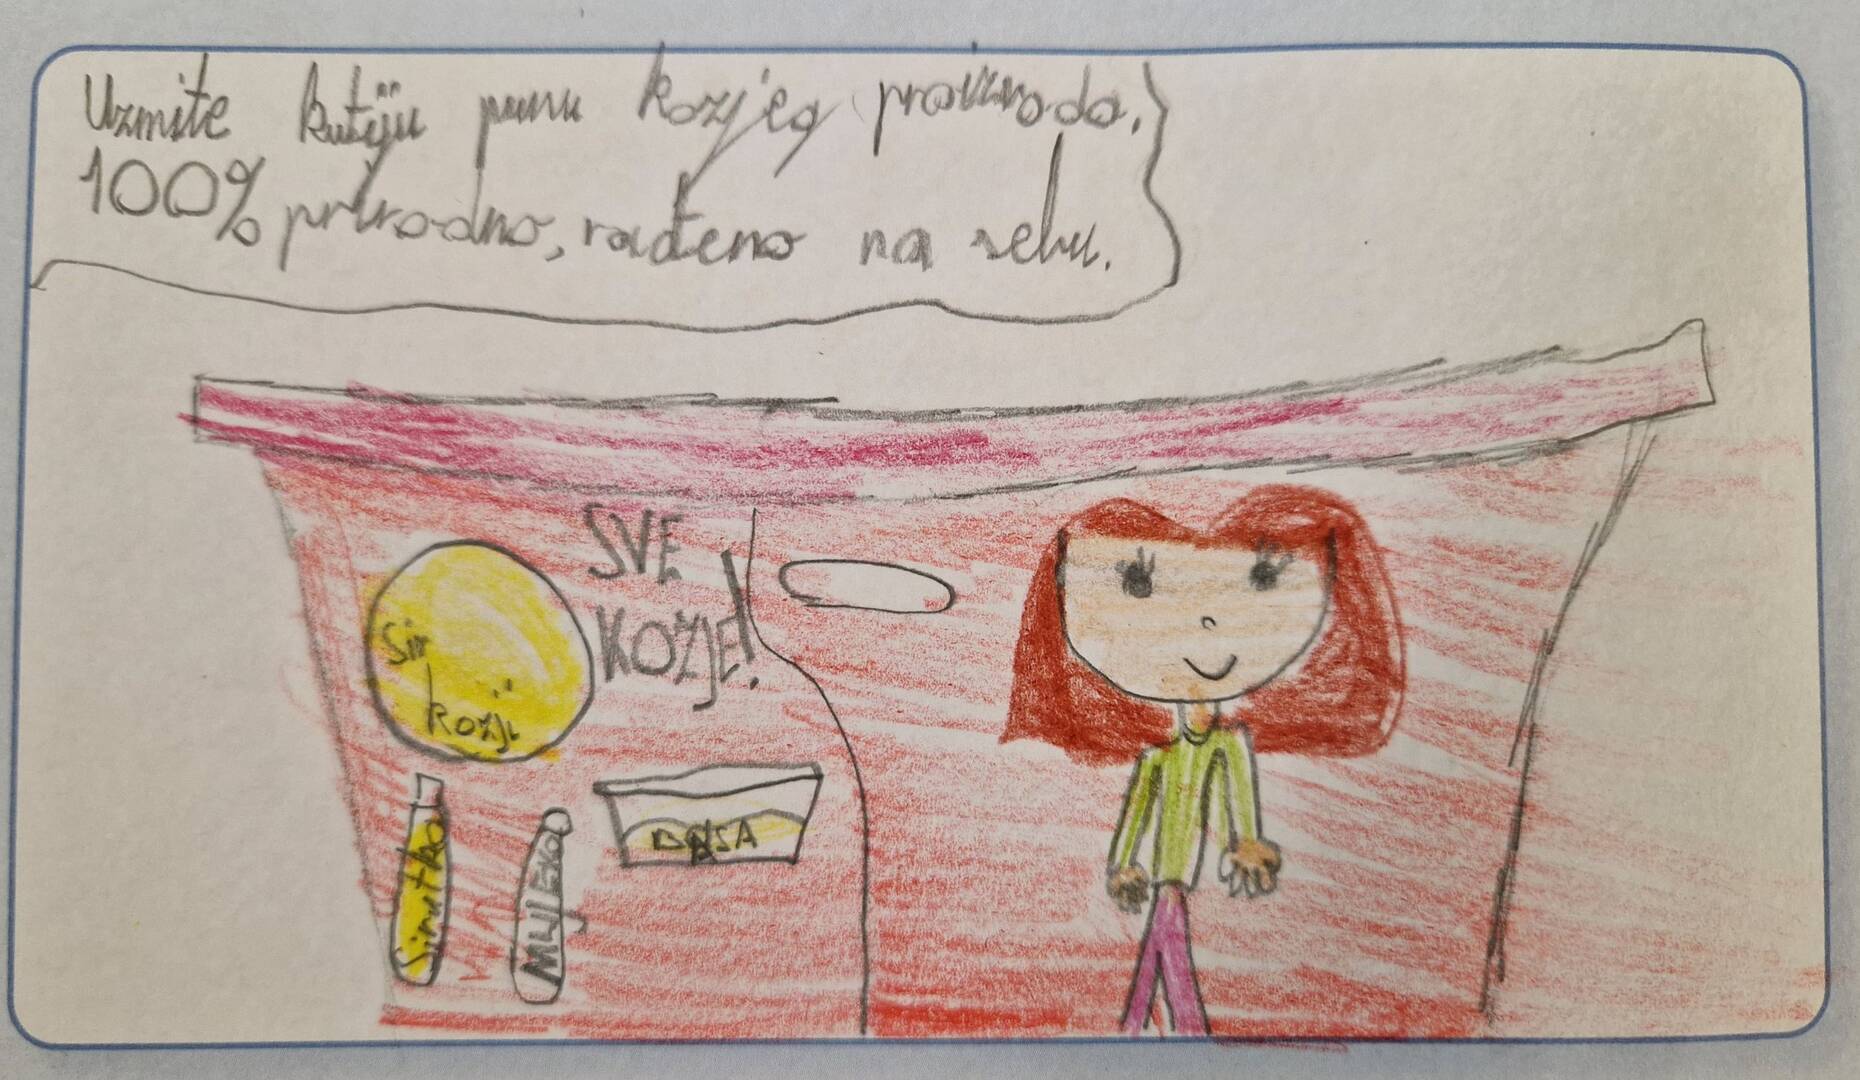 Uzmite kutiju punu kozjeg proizvoda.
100% prirodno, rađeno na selu.
SVE
KOŽJE!
Sir
kožji
Sirutka
MLIJEKO